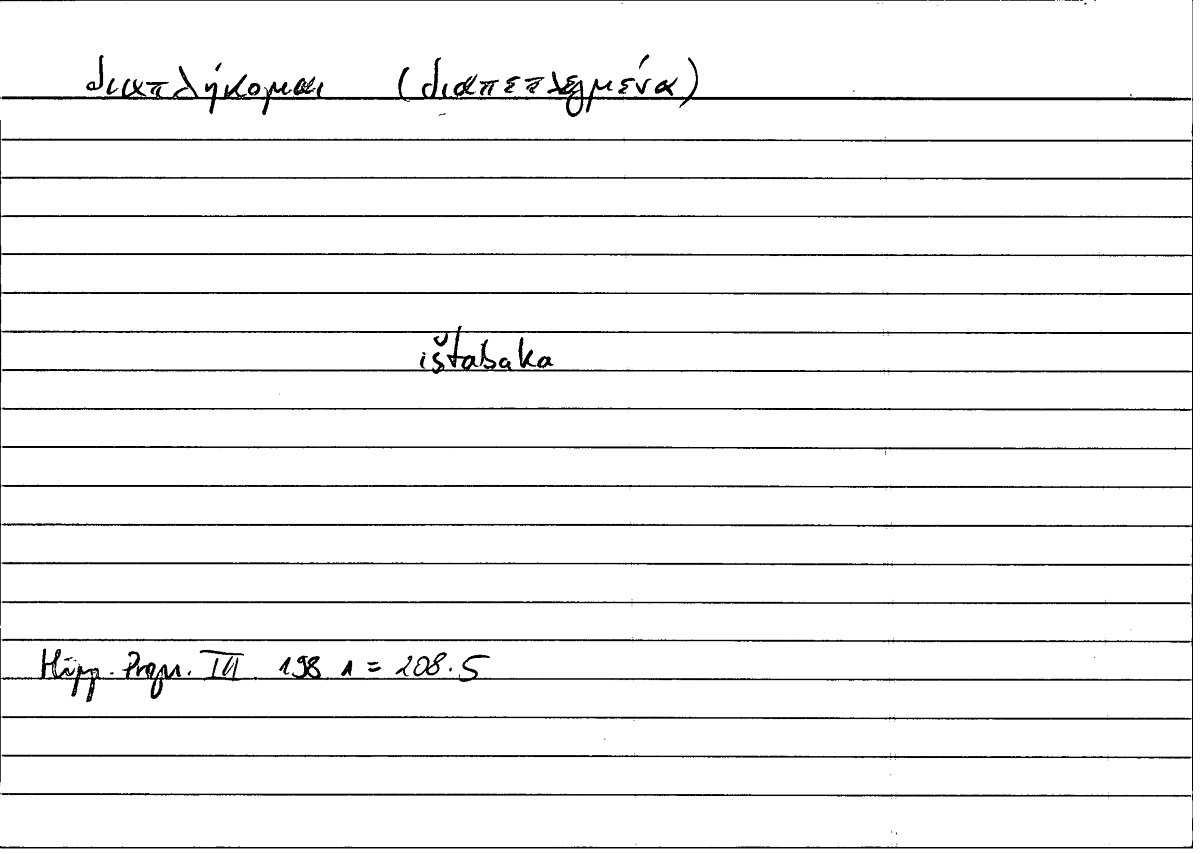 διαπλήκομαι (διαπεπλεγμένα)
ištabaka
Hipp. Progn. III 198 1 = 208.5